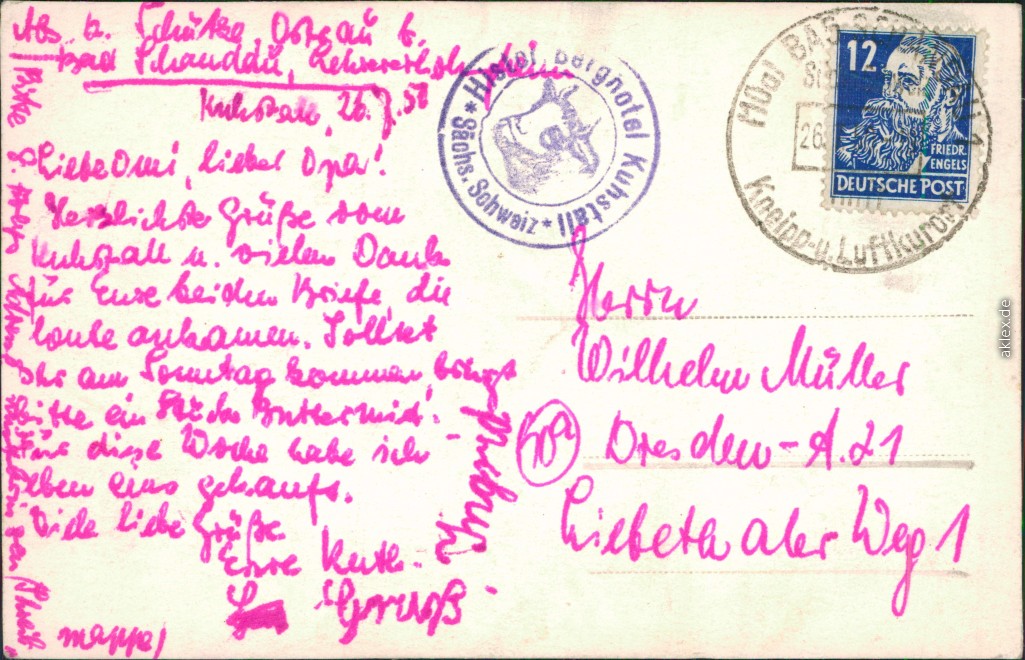 Abs. b. Schütze, Ostrau 6.
Bad Schandau, Lehrererholungsheim
Kuhstall, 26.7.50
Liebe Omi, lieber Opa!
Herzlichste Grüße vom
Kuhstall u. vielen Dank
für Eure beiden Briefe, die
heute ankamen. Solltet
Ihr am Sonntag kommen, bringt
bitte ein Stück Butter mit.
Für diese Woche habe ich
eben eins gekauft.
Viele liebe Grüße
Eure Ruth.
Gruß
mappe)
Histel Berghotel Kuhstall
* Sächs. Schweiz *
Hüg! BAD SCHANDAU
26.
Kneipp-u. Luftkurort
12.
FRIEDR.
ENGELS
DEUTSCHE POST
Herrn
Wilhelm Müller
(10a) Dresden-A. 21
Liebethaler Weg 1
aklex.de